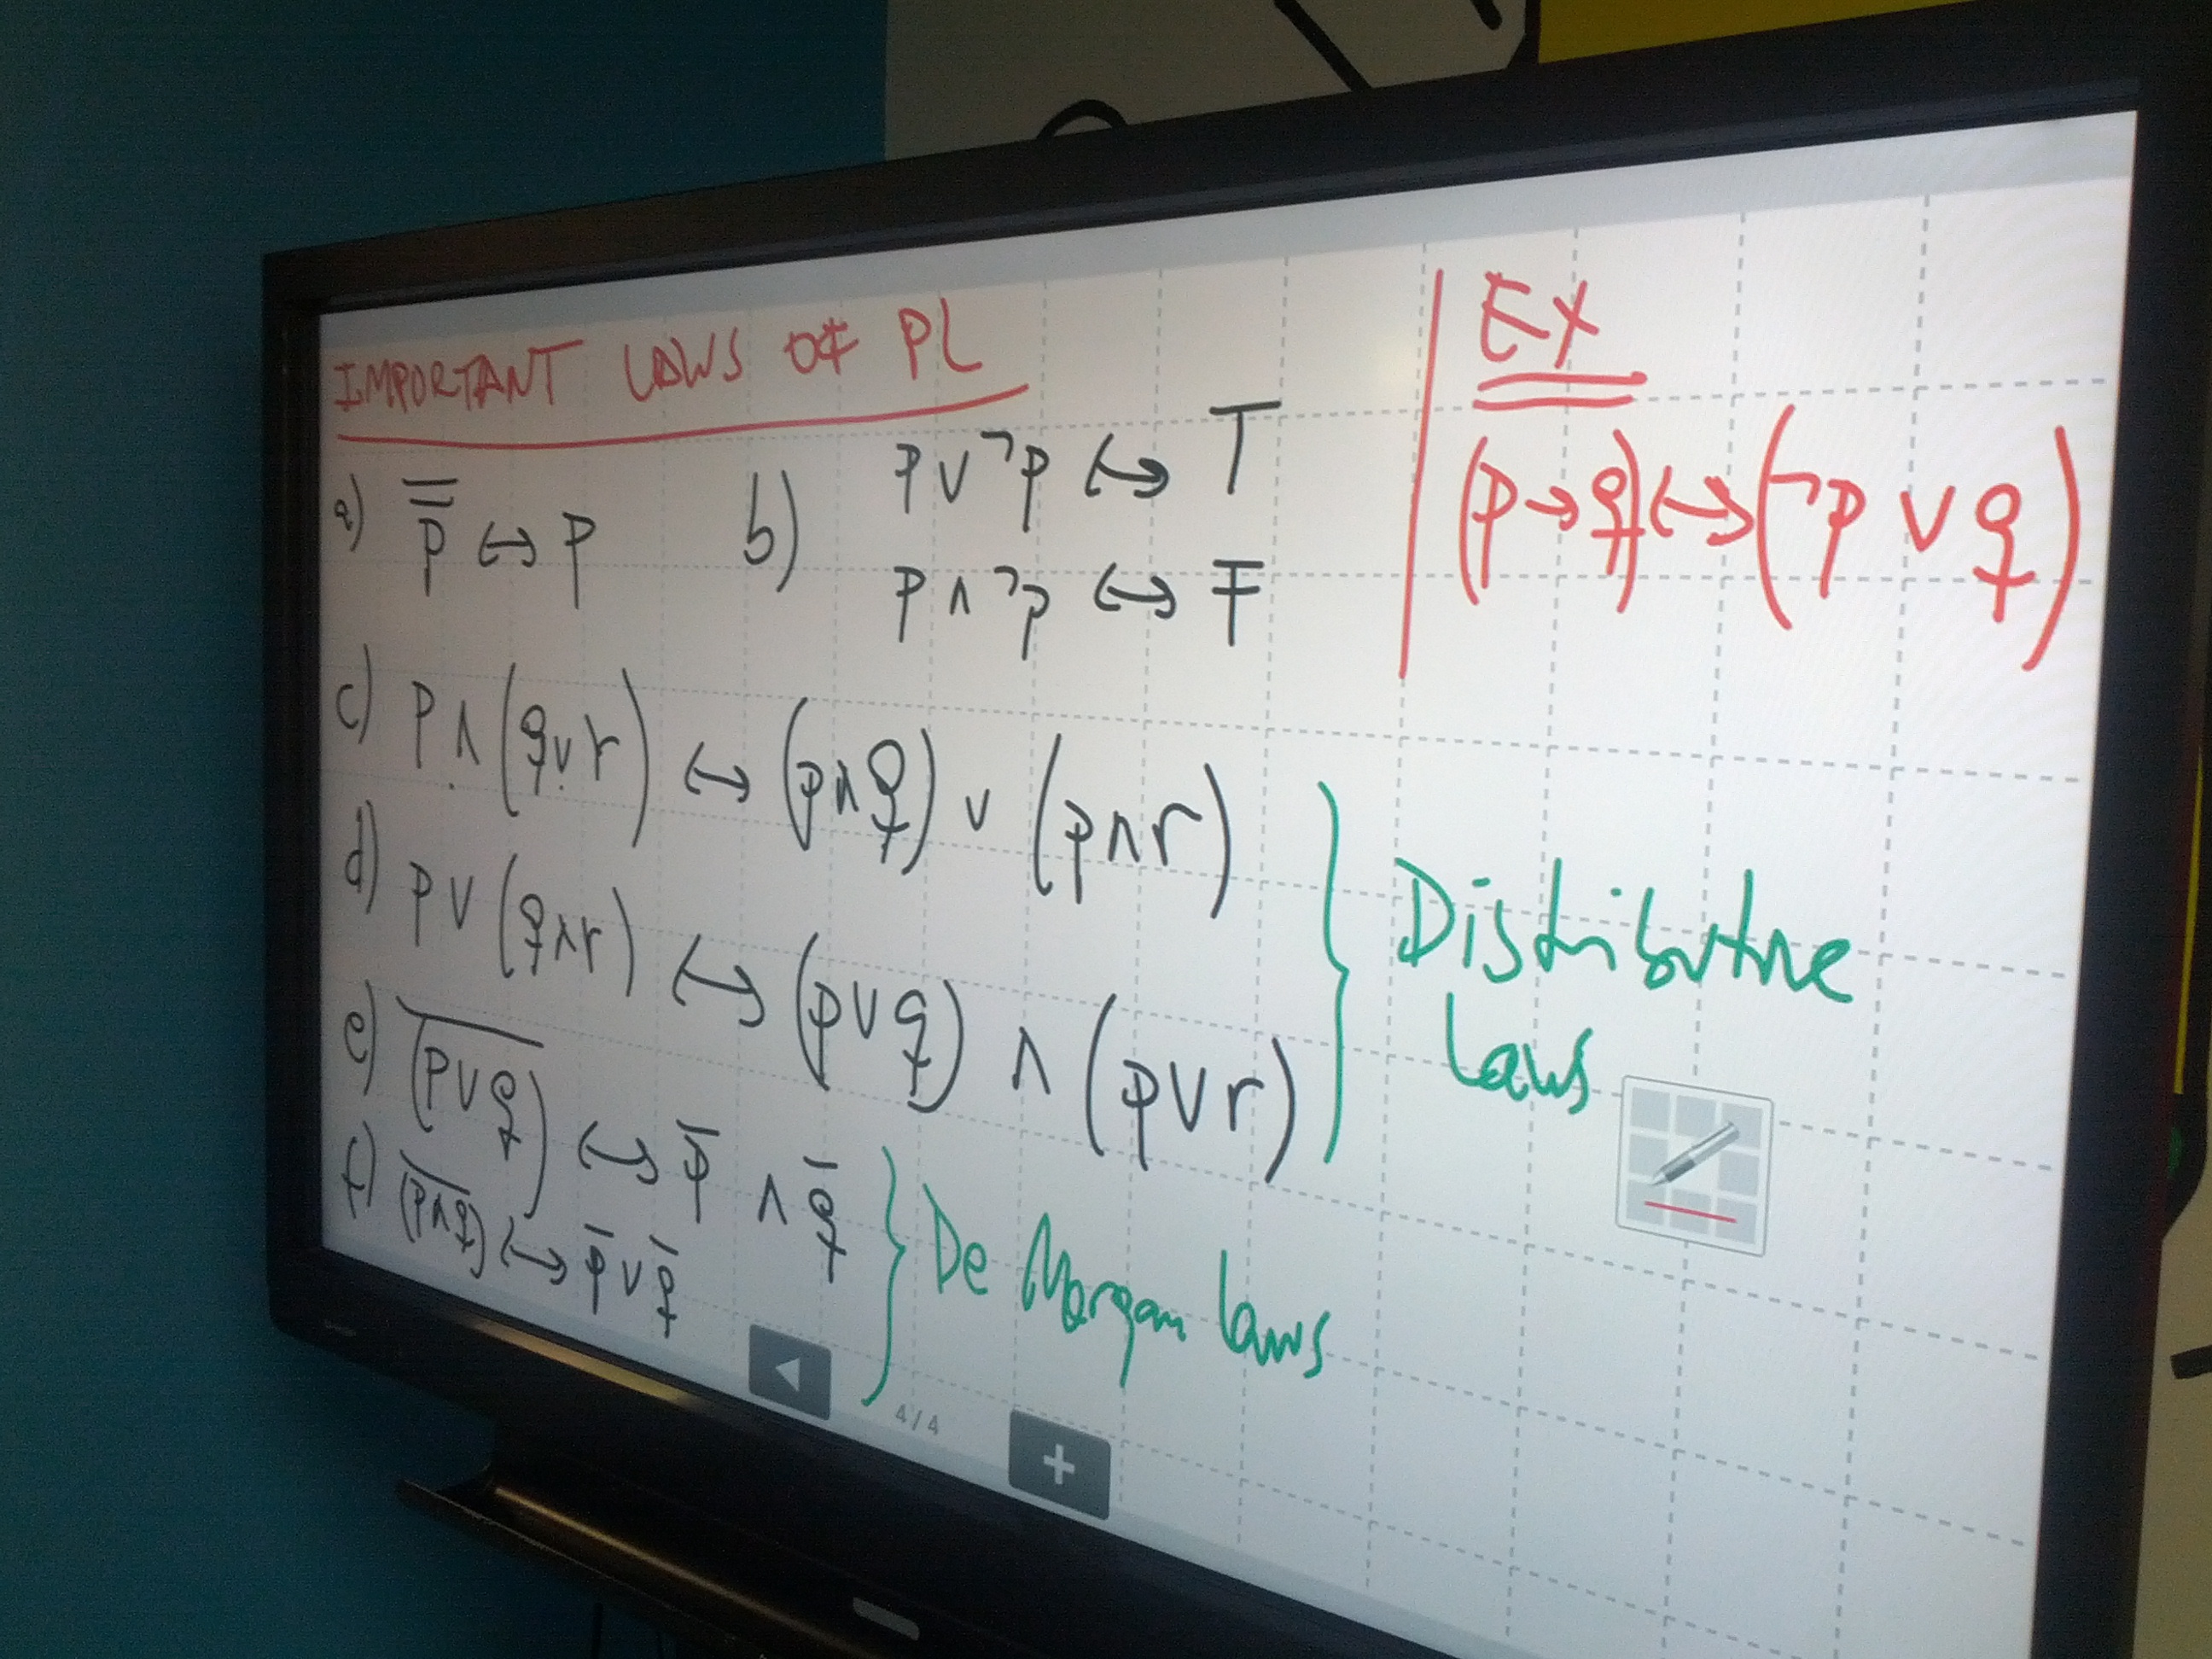 IMPORTANT LAWS OF PL
a) p̿ ↔ p
b) p ∨ ¬p ↔ T
p ∧ ¬p ↔ F
c) p ∧ (q ∨ r) ↔ (p ∧ q) ∨ (p ∧ r)
d) p ∨ (q ∧ r) ↔ (p ∨ q) ∧ (p ∨ r)
Distributive
Laws
e) \overline{(p ∨ q)} ↔ p̅ ∧ q̅
f) \overline{(p ∧ q)} ↔ p̅ ∨ q̅
De Morgan laws
EX
(p → q) ↔ (¬p ∨ q)
4/4